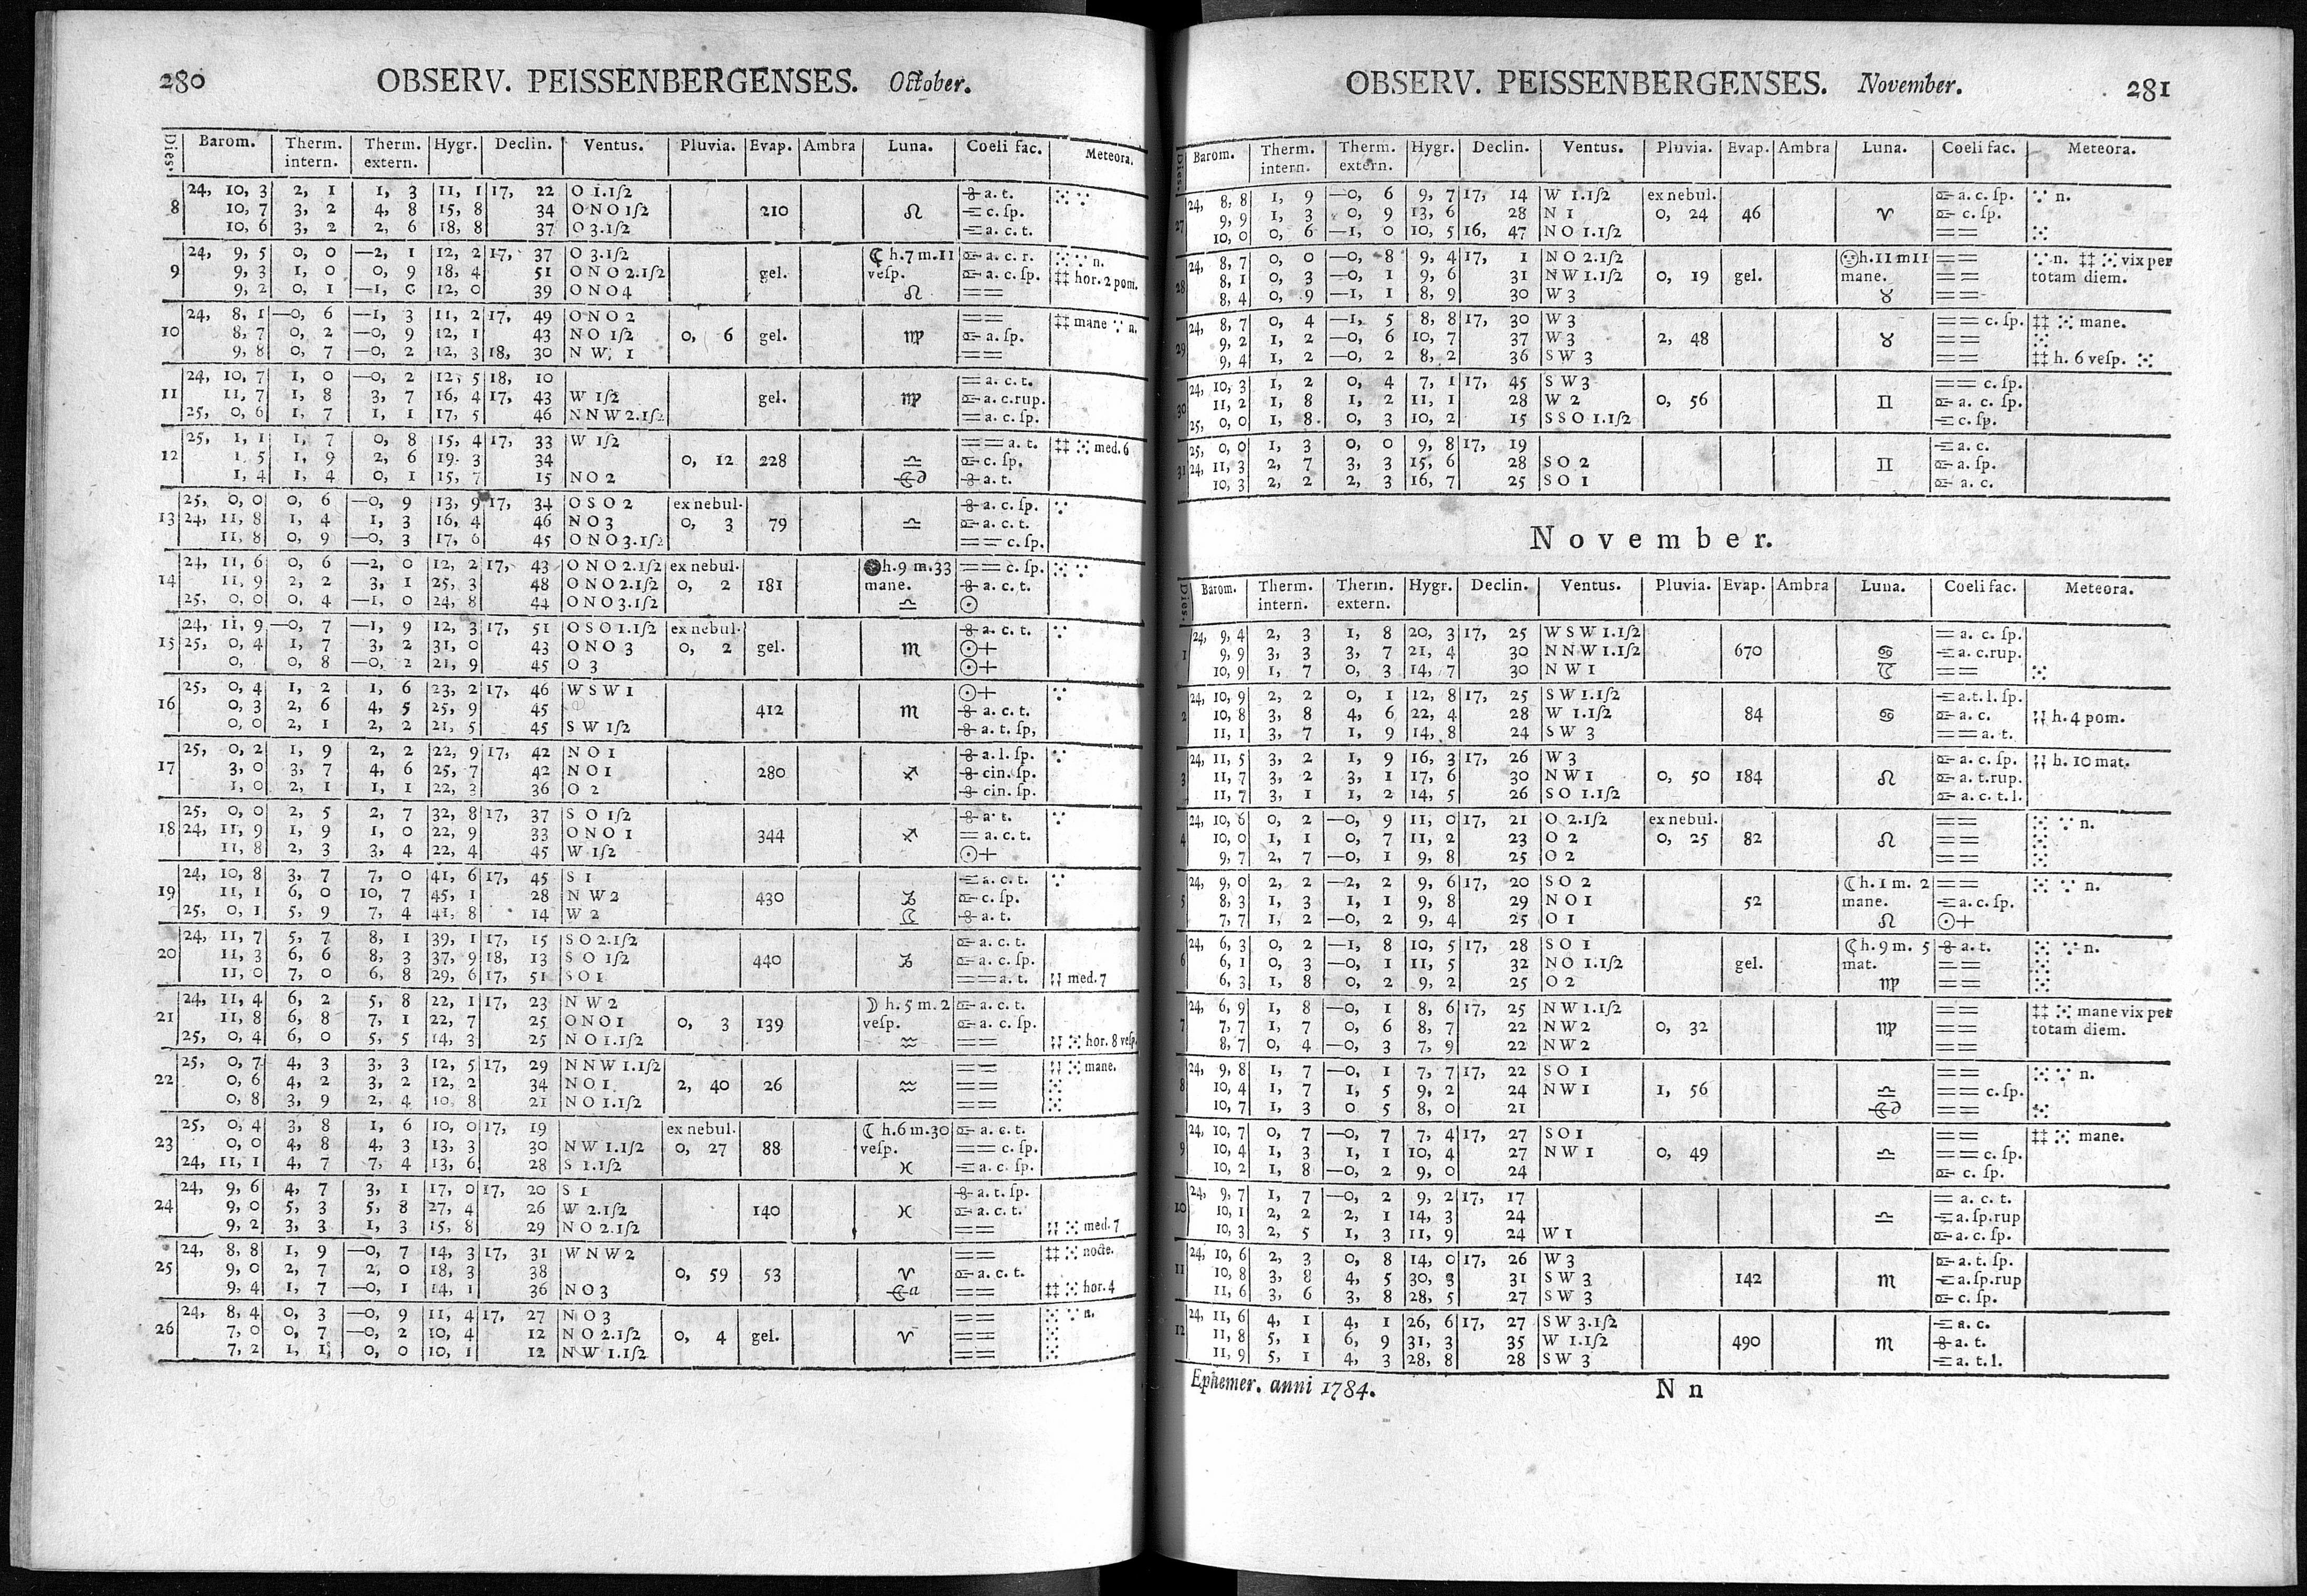 280 OBSERV. PEISSENBERGENSES. October.
Dies. Barom. Therm. intern. Therm. extern. Hygr. Declin. Ventus. Pluvia. Evap. Ambra Luna. Coeli fac. Meteora.
24, 10, 3 2, 1 1, 3 11, 1 17, 22 O 1.1ſ2 a. t.
8 10, 7 3, 2 4, 8 15, 8 34 O N O 1ſ2 210 ♌ c. ſp.
10, 6 3, 2 2, 6 18, 8 37 O 3.1ſ2 a. c. t.
24, 9, 5 0, 0 —2, 1 12, 2 17, 37 O 3.1ſ2 ☾ h. 7 m. 11 a. c. r. n.
9 9, 3 1, 0 0, 9 18, 4 51 O N O 2.1ſ2 gel. veſp. a. c. ſp. ‡‡ hor. 2 pom.
9, 2 0, 1 —1, 0 12, 0 39 O N O 4 ♌ ==
24, 8, 1 —0, 6 —1, 3 11, 2 17, 49 O N O 2 == ‡‡ mane n.
10 8, 7 0, 2 —0, 9 12, 1 43 N O 1ſ2 0, 6 gel. ♍ a. ſp.
9, 8 0, 7 —0, 2 12, 3 18, 30 N W, 1 ==
24, 10, 7 1, 0 —0, 2 12, 5 18, 10 = a. c. t.
11 11, 7 1, 8 3, 7 16, 4 17, 43 W 1ſ2 gel. ♍ a. c. rup.
25, 0, 6 1, 7 1, 1 17, 5 46 N N W 2.1ſ2 = a. c. ſp.
25, 1, 1 1, 7 0, 8 15, 4 17, 33 W 1ſ2 == a. t. ‡‡ med. 6
12 1, 5 1, 9 2, 6 19, 3 34 0, 12 228 ♎ c. ſp.
1, 4 1, 4 0, 1 15, 7 15 N O 2 a. t.
25, 0, 0 0, 6 —0, 9 13, 9 17, 34 O S O 2 ex nebul. a. c. ſp.
13 24, 11, 8 1, 4 1, 3 16, 4 46 N O 3 0, 3 79 ♎ a. c. t.
11, 8 0, 9 —0, 3 17, 6 45 O N O 3.1ſ2 == c. ſp.
24, 11, 6 0, 6 —2, 0 12, 2 17, 43 O N O 2.1ſ2 ex nebul. h. 9 m. 33 == c. ſp.
14 11, 9 2, 2 3, 1 25, 3 48 O N O 2.1ſ2 0, 2 181 mane. a. c. t.
25, 0, 0 0, 4 —1, 0 24, 8 44 O N O 3.1ſ2 ♎ ☉
24, 11, 9 —0, 7 —1, 9 12, 3 17, 51 O S O 1.1ſ2 ex nebul. a. c. t.
15 25, 0, 4 1, 7 3, 2 31, 0 43 O N O 3 0, 2 gel. ♏ ☉+
0, 0, 8 —0, 2 21, 9 45 O 3 ☉+
25, 0, 4 1, 2 1, 6 23, 2 17, 46 W S W 1 ☉+
16 0, 3 2, 6 4, 5 25, 9 45 412 ♏ a. c. t.
0, 0 2, 1 2, 2 21, 5 45 S W 1ſ2 a. t. ſp,
25, 0, 2 1, 9 2, 2 22, 9 17, 42 N O 1 a. l. ſp.
17 3, 0 3, 7 4, 6 25, 7 42 N O 1 280 ♐ cin. ſp.
1, 0 2, 1 1, 1 22, 3 36 O 2 cin. ſp.
25, 0, 0 2, 5 2, 7 32, 8 17, 37 S O 1ſ2 a. t.
18 24, 11, 9 1, 9 1, 0 22, 9 33 O N O 1 344 ♐ = a. c. t.
11, 8 2, 3 3, 4 22, 4 45 W 1ſ2 ☉+
24, 10, 8 3, 7 7, 0 41, 6 17, 45 S 1 a. c. t.
19 11, 1 6, 0 10, 7 45, 1 28 N W 2 430 ♑ c. ſp.
25, 0, 1 5, 9 7, 4 41, 8 14 W 2 a. t.
24, 11, 7 5, 7 8, 1 39, 1 17, 15 S O 2.1ſ2 a. c. t.
20 11, 3 6, 6 8, 3 37, 9 18, 13 S O 1ſ2 440 ♑ a. c. ſp.
11, 0 7, 0 6, 8 29, 6 17, 51 S O 1 == a. t. med. 7
24, 11, 4 6, 2 5, 8 22, 1 17, 23 N W 2 ☽ h. 5 m. 2 a. c. t.
21 11, 8 6, 8 7, 1 22, 7 25 O N O 1 0, 3 139 veſp. a. c. ſp.
25, 0, 4 6, 0 5, 5 14, 3 25 N O 1.1ſ2 ♒ == hor. 8 veſp.
25, 0, 7 4, 3 3, 3 12, 5 17, 29 N N W 1.1ſ2 == mane.
22 0, 6 4, 2 3, 2 12, 2 34 N O 1 2, 40 26 ♒ ==
0, 8 3, 9 2, 4 10, 8 21 N O 1.1ſ2 ==
25, 0, 4 3, 8 1, 6 10, 0 17, 19 ex nebul. ☾ h. 6 m. 30 a. c. t.
23 0, 0 4, 8 4, 3 13, 3 30 N W 1.1ſ2 0, 27 88 veſp. == c. ſp.
24, 11, 1 4, 7 7, 4 13, 6 28 S 1.1ſ2 ♓ a. c. ſp.
24, 9, 6 4, 7 3, 1 17, 0 17, 20 S 1 a. t. ſp.
24 9, 0 5, 3 5, 8 27, 4 26 W 2.1ſ2 140 ♓ a. c. t.
9, 2 3, 3 1, 3 15, 8 29 N O 2.1ſ2 == med. 7
24, 8, 8 1, 9 —0, 7 14, 3 17, 31 W N W 2 == ‡‡ nocte.
25 9, 0 2, 7 2, 0 18, 3 38 0, 59 53 ♈ a. c. t.
9, 4 1, 7 —0, 1 14, 1 36 N O 3 == ‡‡ hor. 4
24, 8, 4 0, 3 —0, 9 11, 4 17, 27 N O 3 == n.
26 7, 0 0, 7 —0, 2 10, 4 12 N O 2.1ſ2 0, 4 gel. ♈ ==
7, 2 1, 1 0, 0 10, 1 12 N W 1.1ſ2 ==
OBSERV. PEISSENBERGENSES. November. 281
Dies. Barom. Therm. intern. Therm. extern. Hygr. Declin. Ventus. Pluvia. Evap. Ambra Luna. Coeli fac. Meteora.
24, 8, 8 1, 9 —0, 6 9, 7 17, 14 W 1.1ſ2 ex nebul. a. c. ſp. n.
27 9, 9 1, 3 0, 9 13, 6 28 N 1 0, 24 46 ♈ c. ſp.
10, 0 0, 6 —1, 0 10, 5 16, 47 N O 1.1ſ2 ==
24, 8, 7 0, 0 —0, 8 9, 4 17, 1 N O 2.1ſ2 h. 11 m 11 == n. ‡‡ vix per
28 8, 1 0, 3 —0, 1 9, 6 31 N W 1.1ſ2 0, 19 gel. mane. == totam diem.
8, 4 0, 9 —1, 1 8, 9 30 W 3 ♉ ==
24, 8, 7 0, 4 —1, 5 8, 8 17, 30 W 3 == c. ſp. ‡‡ mane.
29 9, 2 1, 2 —0, 6 10, 7 37 W 3 2, 48 ♉ ==
9, 4 1, 2 —0, 2 8, 2 36 S W 3 == ‡‡ h. 6 veſp.
24, 10, 3 1, 2 0, 4 7, 1 17, 45 S W 3 == c. ſp.
30 11, 2 1, 8 1, 2 11, 1 28 W 2 0, 56 ♊ a. c. ſp.
25, 0, 0 1, 8. 0, 3 10, 2 15 S S O 1.1ſ2 c. ſp.
25, 0, 0 1, 3 0, 0 9, 8 17, 19 a. c.
31 24, 11, 3 2, 7 3, 3 15, 6 28 S O 2 ♊ a. ſp.
10, 3 2, 2 2, 3 16, 7 25 S O 1 a. c.
November.
Dies. Barom. Therm. intern. Therm. extern. Hygr. Declin. Ventus. Pluvia. Evap. Ambra Luna. Coeli fac. Meteora.
24, 9, 4 2, 3 1, 8 20, 3 17, 25 W S W 1.1ſ2 = a. c. ſp.
1 9, 9 3, 3 3, 7 21, 4 30 N N W 1.1ſ2 670 ♋ a. c. rup.
10, 9 1, 7 0, 3 14, 7 30 N W 1 ==
24, 10, 9 2, 2 0, 1 12, 8 17, 25 S W 1.1ſ2 a. t. l. ſp.
2 10, 8 3, 8 4, 6 22, 4 28 W 1.1ſ2 84 ♋ a. c. h. 4 pom.
11, 1 3, 7 1, 9 14, 8 24 S W 3 == a. t.
24, 11, 5 3, 2 1, 9 16, 3 17, 26 W 3 a. c. ſp. h. 10 mat.
3 11, 7 3, 2 3, 1 17, 6 30 N W 1 0, 50 184 ♌ a. t. rup.
11, 7 3, 1 1, 2 14, 5 26 S O 1.1ſ2 a. c. t. l.
24, 10, 6 0, 2 —0, 9 11, 0 17, 21 O 2.1ſ2 ex nebul. == n.
4 10, 0 1, 1 0, 7 11, 2 23 O 2 0, 25 82 ♌ ==
9, 7 2, 7 —0, 1 9, 8 25 O 2 ==
24, 9, 0 2, 2 —2, 2 9, 6 17, 20 S O 2 ☾ h. 1 m. 2 == n.
5 8, 3 1, 3 1, 1 9, 8 29 N O 1 52 mane. a. c. ſp.
7, 7 1, 2 —0, 2 9, 4 25 O 1 ♌ ☉+
24, 6, 3 0, 2 —1, 8 10, 5 17, 28 S O 1 ☾ h. 9 m. 5 a. t. n.
6 6, 1 0, 3 —0, 1 11, 5 32 N O 1.1ſ2 gel. mat. ==
6, 3 1, 8 0, 2 9, 2 25 O 2 ♍ ==
24, 6, 9 1, 8 —0, 1 8, 6 17, 25 N W 1.1ſ2 == ‡‡ mane vix per
7 7, 7 1, 7 0, 6 8, 7 22 N W 2 0, 32 ♍ == totam diem.
8, 7 0, 4 —0, 3 7, 9 22 N W 2 ==
24, 9, 8 1, 7 —0, 1 7, 7 17, 22 S O 1 == n.
8 10, 4 1, 7 1, 5 9, 2 24 N W 1 1, 56 ♎ == c. ſp.
10, 7 1, 3 0 5 8, 0 21 ==
24, 10, 7 0, 7 —0, 7 7, 4 17, 27 S O 1 == ‡‡ mane.
9 10, 4 1, 3 1, 1 10, 4 27 N W 1 0, 49 ♎ == c. ſp.
10, 2 1, 8 —0, 2 9, 0 24 c. ſp.
24, 9, 7 1, 7 —0, 2 9, 2 17, 17 = a. c. t.
10 10, 1 2, 2 2, 1 14, 3 24 ♎ a. ſp. rup
10, 3 2, 5 1, 3 11, 9 24 W 1 a. c. ſp.
24, 10, 6 2, 3 0, 8 14, 0 17, 26 W 3 a. t. ſp.
11 10, 8 3, 8 4, 5 30, 3 31 S W 3 142 ♏ a. ſp. rup
11, 6 3, 6 3, 8 28, 5 27 S W 3 c. ſp.
24, 11, 6 4, 1 4, 1 26, 6 17, 27 S W 3.1ſ2 a. c.
12 11, 8 5, 1 6, 9 31, 3 35 W 1.1ſ2 490 ♏ a. t.
11, 9 5, 1 4, 3 28, 8 28 S W 3 a. t. l.
Ephemer. anni 1784. N n